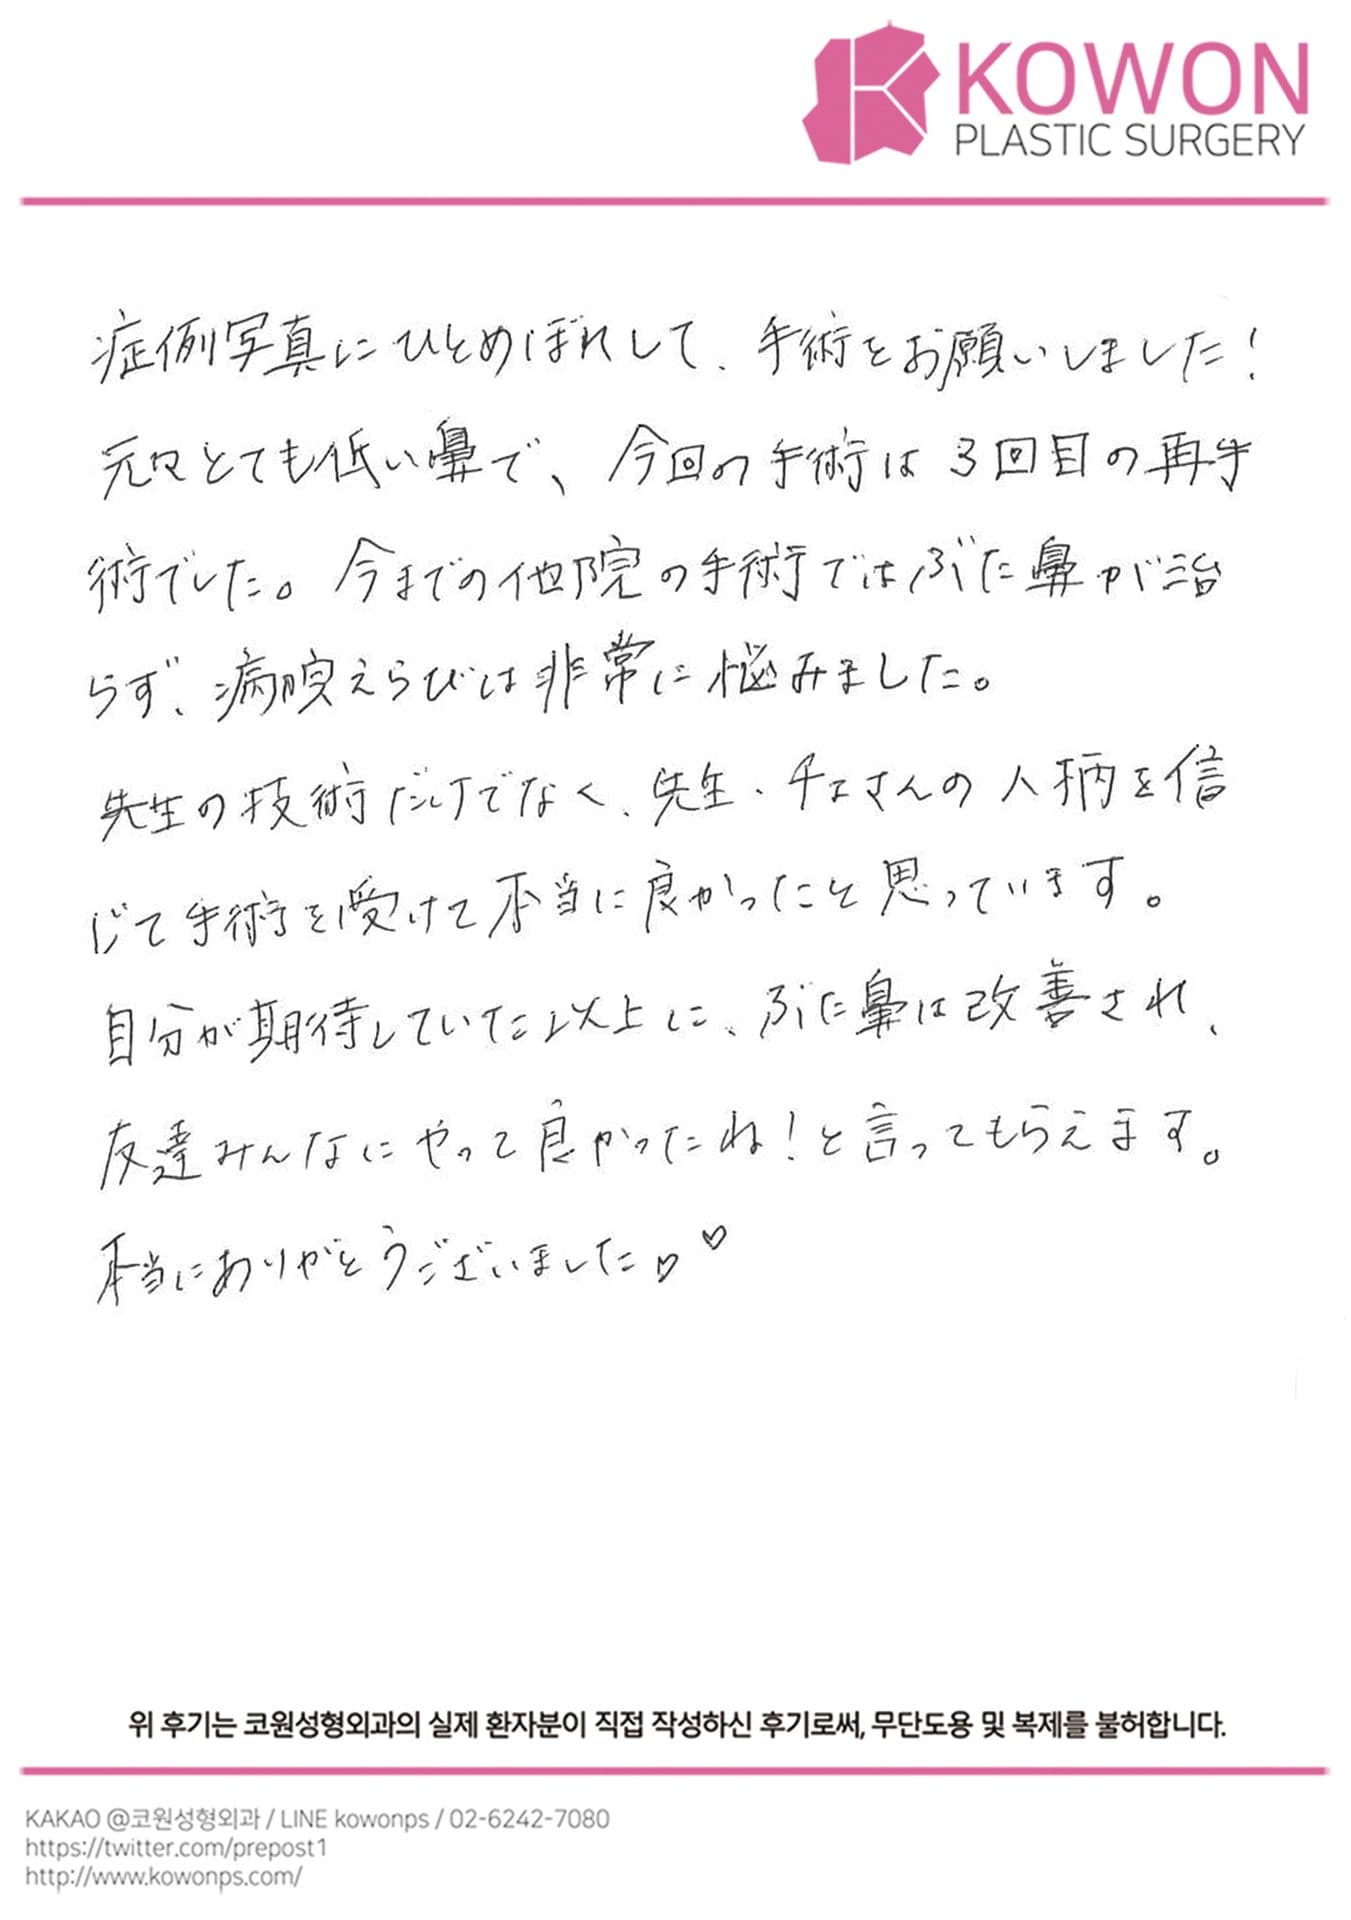 KOWON
PLASTIC SURGERY
症例写真にひとめぼれして、手術をお願いしました!
元々とても低い鼻で、今回の手術は3回目の再手
術でした。今までの他院の手術ではぶた鼻が治
らず、病院えらびは非常に悩みました。
先生の技術だけでなく、先生・チェさんの人柄を信
じて手術を受けて本当に良かったと思っています。
自分が期待していた以上に、ぶた鼻は改善され、
友達みんなにやって良かったね!と言ってもらえます。
本当にありがとうございました♡♡
위 후기는 코원성형외과의 실제 환자분이 직접 작성하신 후기로써, 무단도용 및 복제를 불허합니다.
KAKAO @코원성형외과 / LINE kowonps / 02-6242-7080
https://twitter.com/prepost1
http://www.kowonps.com/